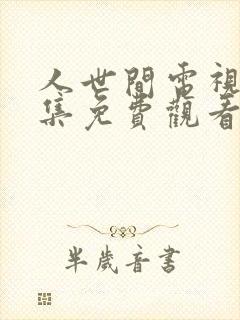 人世間電視
集免費觀看
半歲音書